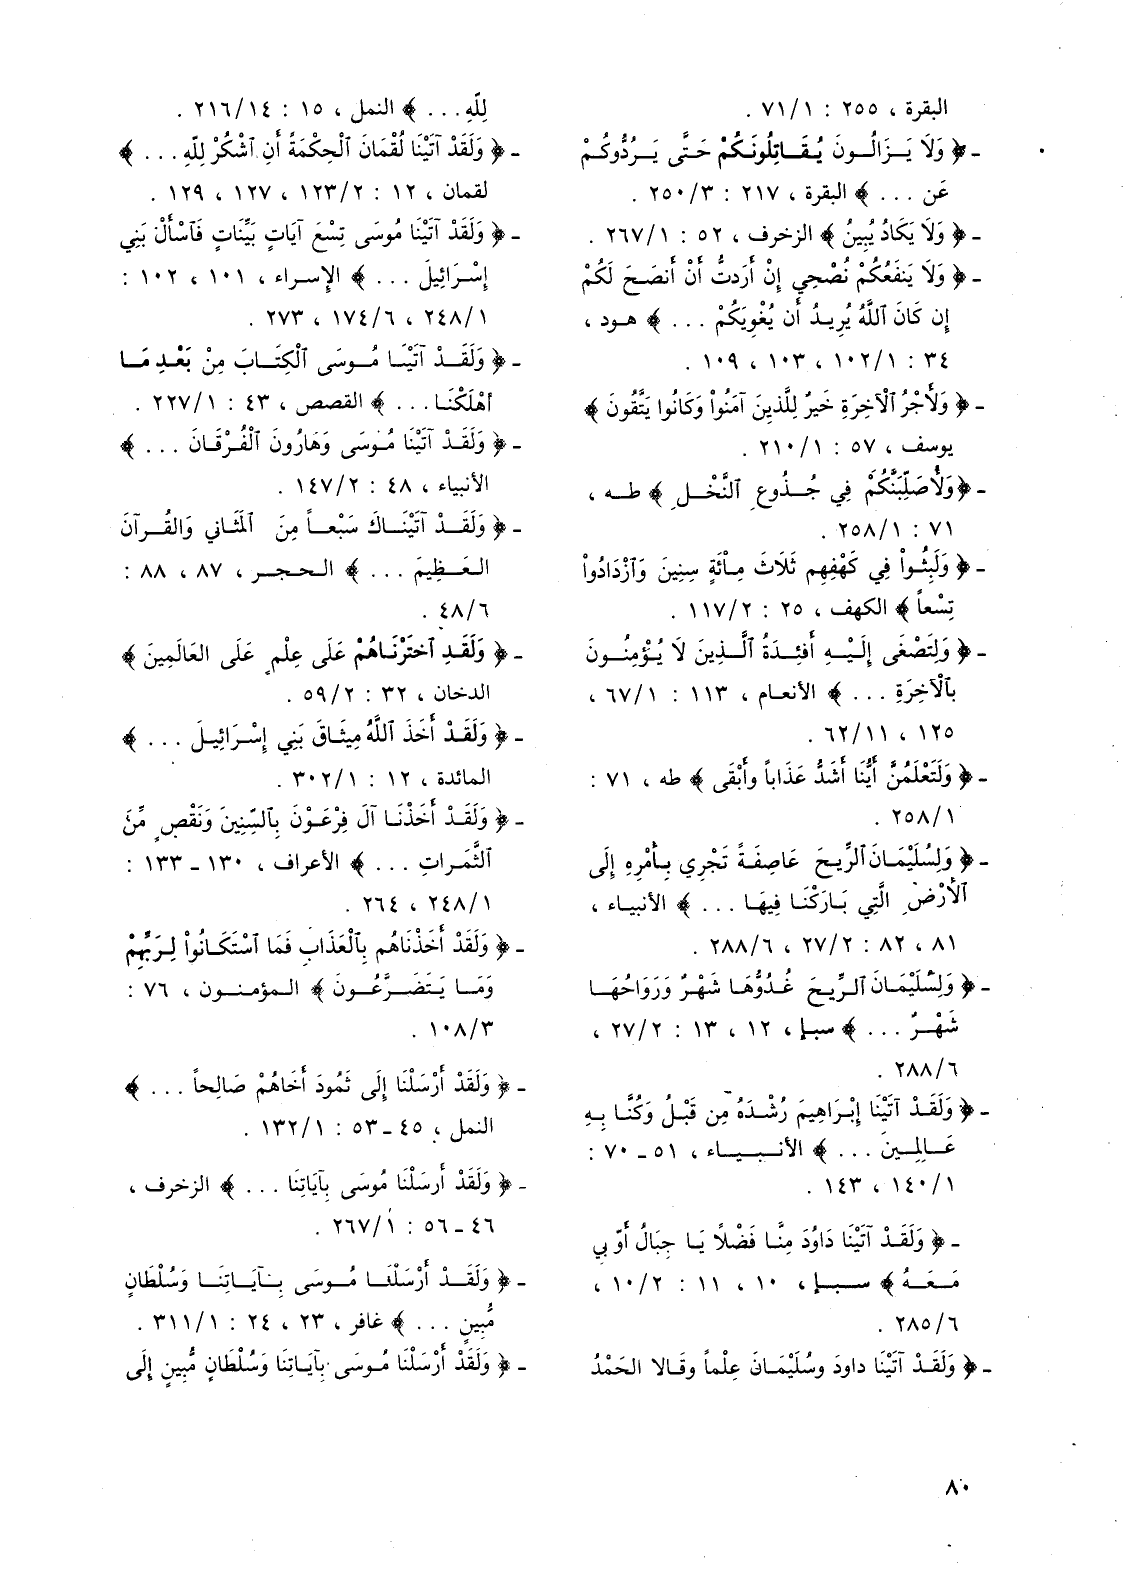 البقرة ، ٢٥٥ : ٧١/١ .
- ﴿ وَلَا يَـزَالُـونَ يُقَـاتِلُونَكُمْ حَتَّى يَـرُدُّوكُـمْ
عَن ... ﴾ البقرة ، ٢١٧ : ٢٥٠/٣ .
- ﴿ وَلَا يَكَادُ يُبِينُ ﴾ الزخرف ، ٥٢ : ٢٦٧/١ .
- ﴿ وَلَا يَنفَعُكُمْ نُصْحِي إِنْ أَرَدتُّ أَنْ أَنصَحَ لَكُمْ
إِن كَانَ ٱللَّهُ يُرِيـدُ أَن يُغْوِيَكُمْ ... ﴾ هـود ،
٣٤ : ١٠٢/١ ، ١٠٣ ، ١٠٩ .
- ﴿ وَلَأَجْرُ ٱلْآخِرَةِ خَيْرٌ لِلَّذِينَ آمَنُواْ وَكَانُوا يَتَّقُونَ ﴾
يوسف ، ٥٧ : ٢١٠/١ .
- ﴿وَلَأُصَلِّبَنَّكُمْ فِي جُـذُوعِ ٱلنَّخْـلِ ﴾ طـه ،
٧١ : ٢٥٨/١ .
- ﴿ وَلَبِثُواْ فِي كَهْفِهِم ثَلَاثَ مِائَةٍ سِنِينَ وَٱزْدَادُواْ
تِسْعاً ﴾ الكهف ، ٢٥ : ١١٧/٢ .
- ﴿ وَلِتَصْغَى إِلَيْـهِ أَفْئِـدَةُ ٱلَّـذِينَ لَا يُـؤْمِنُـونَ
بِٱلْآخِرَةِ ... ﴾ الأنعـام ، ١١٣ : ٦٧/١ ،
١٢٥ ، ٦٢/١١ .
- ﴿ وَلَتَعْلَمُنَّ أَيُّنَا أَشَدُّ عَذَاباً وأَبْقَى ﴾ طه ، ٧١ :
٢٥٨/١ .
- ﴿ وَلِسُلَيْمَانَ ٱلرِّيـحَ عَاصِفَةً تَجْرِي بِـأَمْرِهِ إِلَى
ٱلْأَرْضِ الَّتِي بَـارَكْنَـا فِيهَـا ... ﴾ الأنبيـاء ،
٨١ ، ٨٢ : ٢٧/٢ ، ٢٨٨/٦ .
- ﴿ وَلِسُلَيْمَانَ ٱلرِّيـحَ غُـدُوُّهَـا شَهْـرٌ وَرَوَاحُهَـا
شَهْـرٌ ... ﴾ سبـإ ، ١٢ ، ١٣ : ٢٧/٢ ،
٢٨٨/٦ .
- ﴿ وَلَقَـدْ آتَيْنَا إِبْـرَاهِيمَ رُشْـدَهُ مِن قَبْـلُ وَكُنَّـا بِهِ
عَـالِمِـينَ ... ﴾ الأنـبـيـاء ، ٥١ - ٧٠ :
١٤٠/١ ، ١٤٣ .
- ﴿ وَلَقَـدْ آتَيْنَا دَاوُدَ مِنَّـا فَضْـلًا يَـا جِبَالُ أَوِّبِي
مَـعَـهُ ﴾ سـبـإ ، ١٠ ، ١١ : ١٠/٢ ،
٢٨٥/٦ .
- ﴿ وَلَقَـدْ آتَيْنَا داودَ وسُلَيْمَـانَ عِلْماً وقَـالا الحَمْدُ
لِلَّهِ ... ﴾ النمل ، ١٥ : ٢١٦/١٤ .
- ﴿ وَلَقَدْ آتَيْنَا لُقْمَانَ ٱلْحِكْمَةَ أَنِ ٱشْكُرْ لِلَّهِ ... ﴾
لقمان ، ١٢ : ١٢٣/٢ ، ١٢٧ ، ١٢٩ .
- ﴿ وَلَقَدْ آتَيْنَا مُوسَى تِسْعَ آيَاتٍ بَيِّنَاتٍ فَٱسْأَلْ بَنِي
إِسْـرَائِيلَ ... ﴾ الإسـراء ، ١٠١ ، ١٠٢ :
٢٤٨/١ ، ١٧٤/٦ ، ٢٧٣ .
- ﴿ وَلَقَـدْ آتَيْنَـا مُـوسَى ٱلْكِتَـابَ مِنْ بَعْـدِ مَـا
أَهْلَكْنَـا... ﴾ القصص ، ٤٣ : ٢٢٧/١ .
- ﴿ وَلَقَـدْ آتَيْنَا مُـوسَى وَهَارُونَ ٱلْفُـرْقَـانَ ... ﴾
الأنبياء ، ٤٨ : ١٤٧/٢ .
- ﴿ وَلَقَـدْ آتَيْنَـاكَ سَبْعـاً مِنَ ٱلْمَثَـاني وَالقُـرآنَ
العَـظِيمَ ... ﴾ الـحـجـر ، ٨٧ ، ٨٨ :
٤٨/٦ .
- ﴿ وَلَقَدِ ٱخْتَرْنَاهُمْ عَلَى عِلْمٍ عَلَى العَالَمِينَ ﴾
الدخان ، ٣٢ : ٥٩/٢ .
- ﴿ وَلَقَـدْ أَخَذَ ٱللَّهُ مِيثَـاقَ بَنِي إِسْـرَائِيـلَ ... ﴾
المائدة ، ١٢ : ٣٠٢/١ .
- ﴿ وَلَقَـدْ أَخَذْنَـا آلَ فِرْعَـوْنَ بِٱلسِّنِينَ وَنَقْصٍ مِّنَ
ٱلثَّمَراتِ ... ﴾ الأعراف ، ١٣٠ - ١٣٣ :
٢٤٨/١ ، ٢٦٤ .
- ﴿ وَلَقَدْ أَخَذْنَاهُم بِٱلْعَذَابِ فَمَا ٱسْتَكَانُواْ لِـرَبِّهِمْ
وَمَـا يَتَضَـرَّعُـونَ ﴾ المـؤمنـون ، ٧٦ :
١٠٨/٣ .
- ﴿ وَلَقَدْ أَرْسَلْنَا إِلَى ثَمُودَ أَخَاهُمْ صَالِحاً ... ﴾
النمل ، ٤٥ - ٥٣ : ١٣٢/١ .
- ﴿ وَلَقَدْ أَرسَلْنَا مُوسَى بِآيَاتِنَا ... ﴾ الزخرف ،
٤٦ - ٥٦ : ٢٦٧/١ .
- ﴿ وَلَقَـدْ أَرْسَلْنَـا مُـوسَى بِـآيَـاتِنَـا وَسُلْطَانٍ
مُّبِينٍ ... ﴾ غافر ، ٢٣ ، ٢٤ : ٣١١/١ .
- ﴿ وَلَقَدْ أَرْسَلْنَا مُـوسَى بِآيَـاتِنَا وَسُلْطَانٍ مُّبِينٍ إِلَى
٨٠